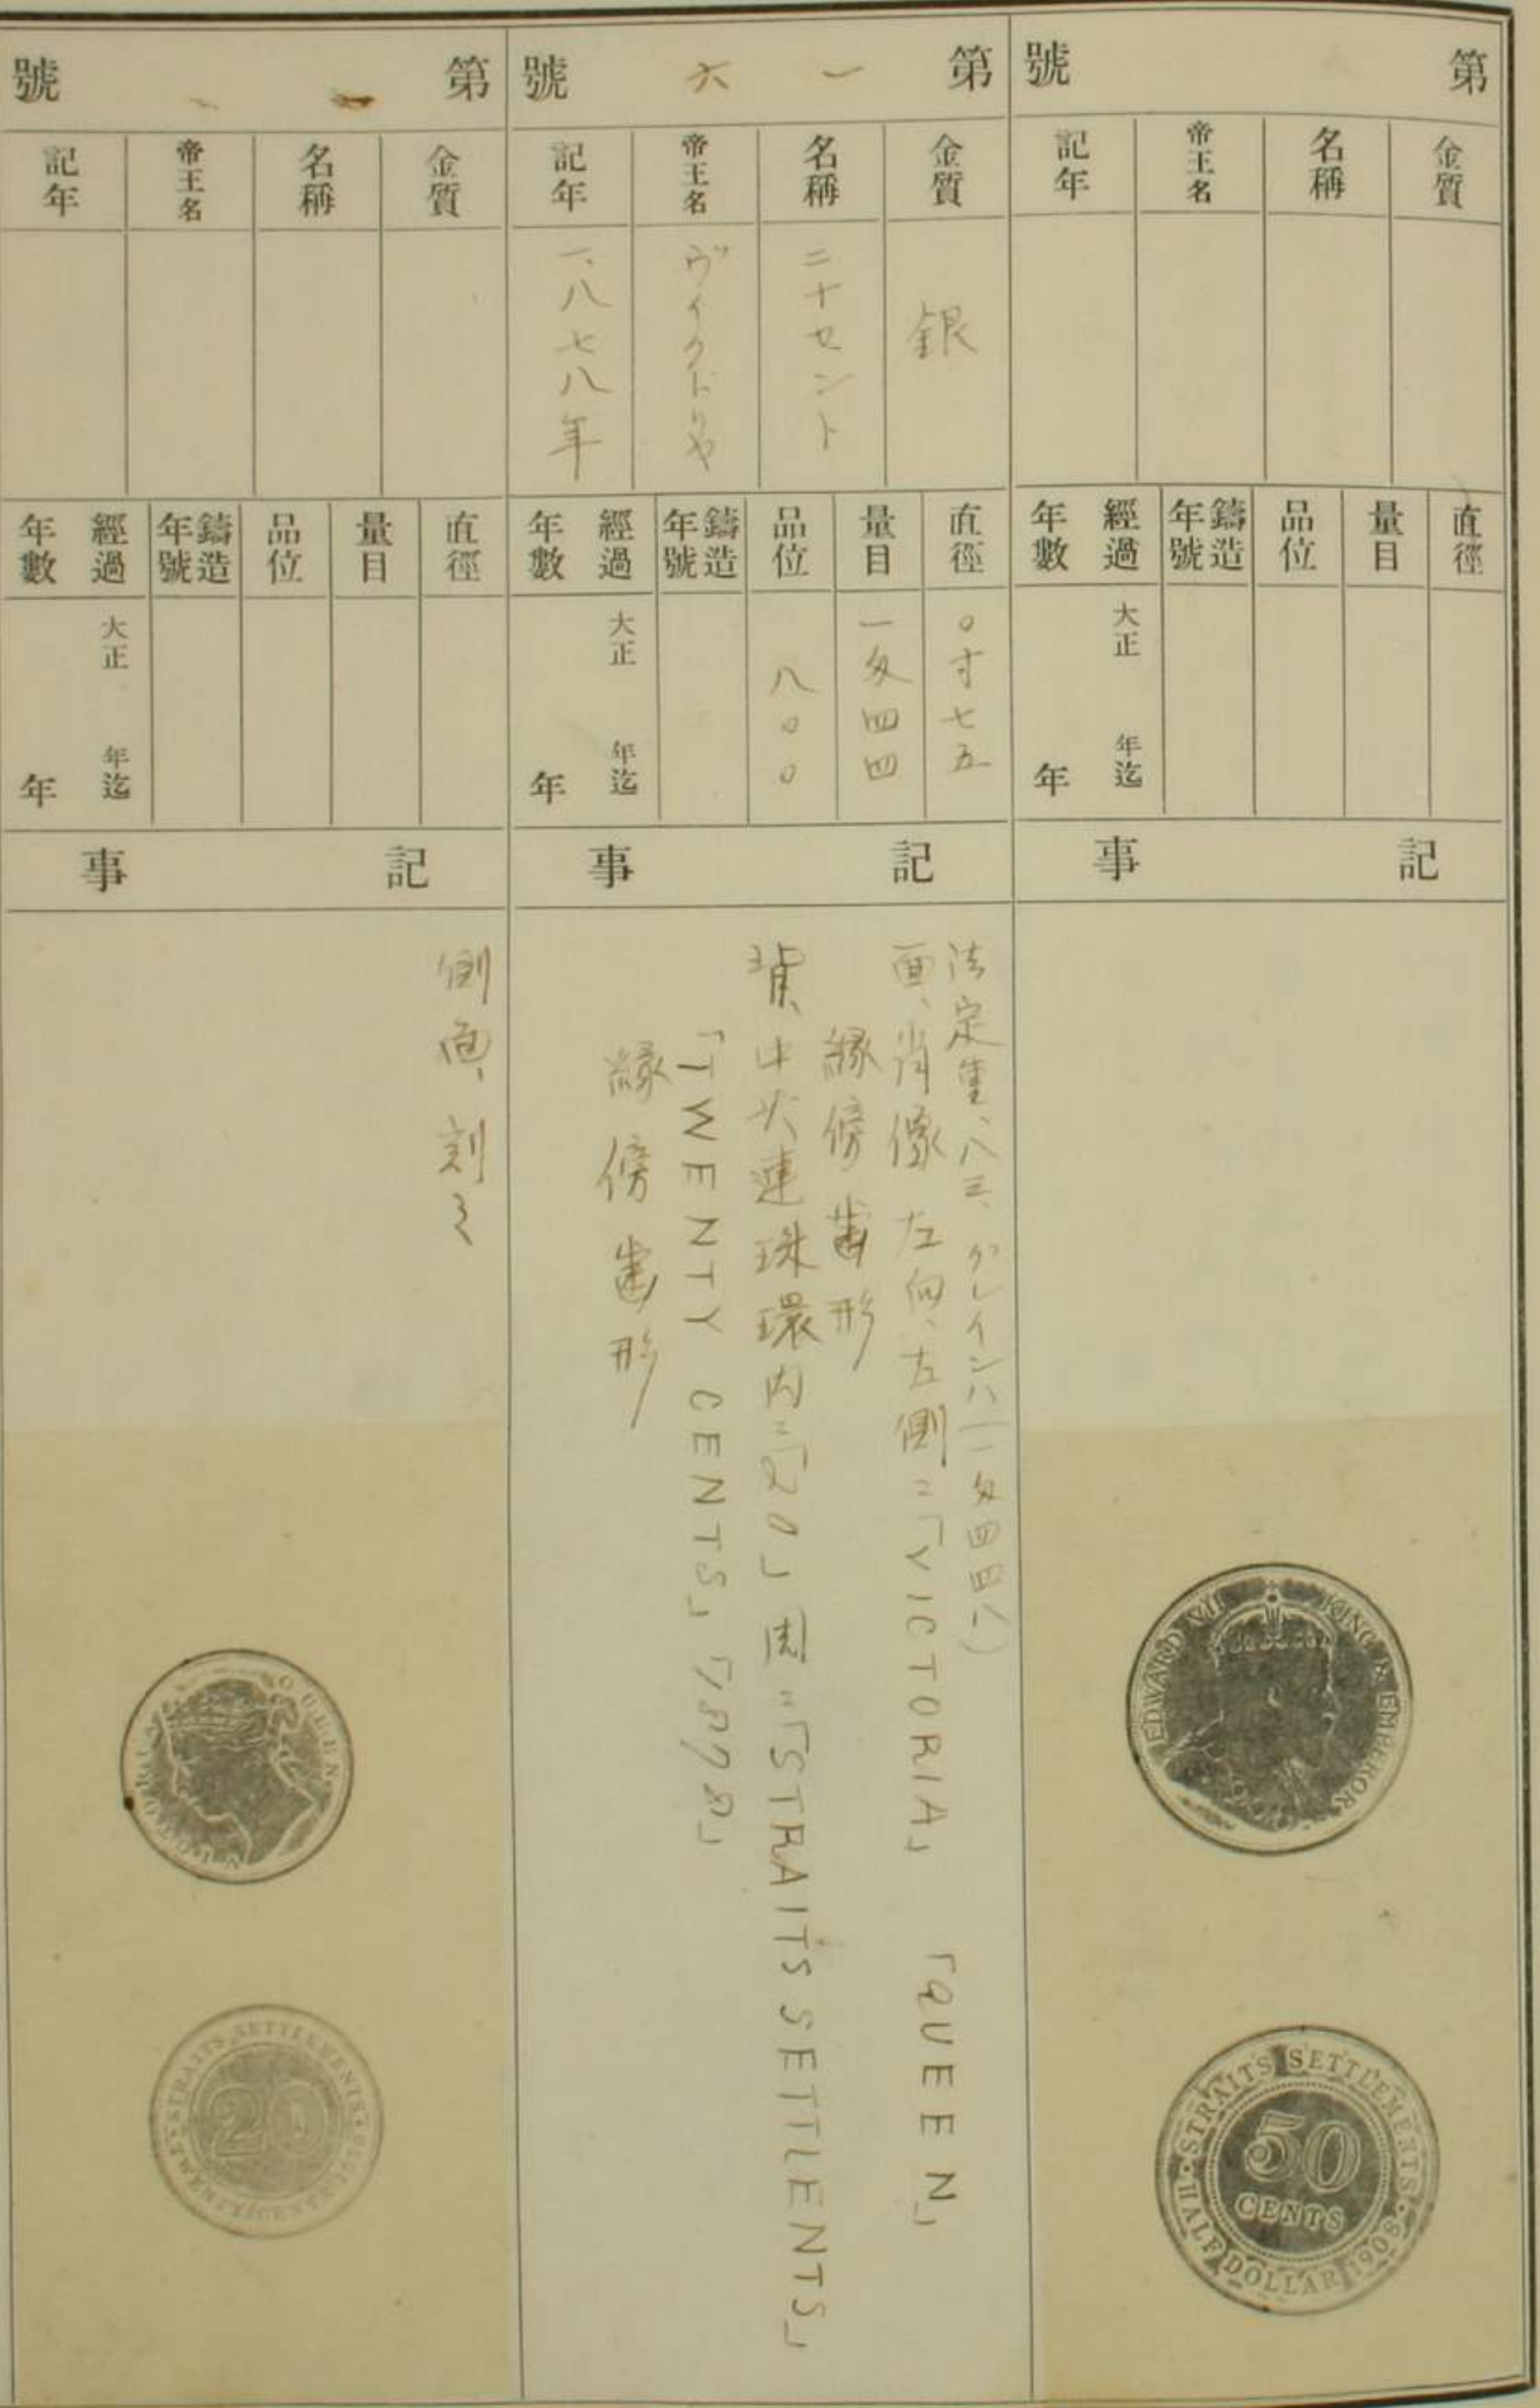 第 號
金質
名稱
帝王名
記年
直徑
量目
品位
鑄造年號
經過年數
大正 年迄
年
記事
EDWARD VII KING & EMPEROR
STRAITS SETTLEMENTS
HALF DOLLAR 1908
50
CENTS
第一六號
金質
銀
名稱
二十セント
帝王名
ヴィクトリヤ
記年
一八七八年
直徑
〇寸七五
量目
一匁四四
品位
八〇〇
鑄造年號
經過年數
大正 年迄
年
記事
法定量、八三、グレイン八(一匁四四八)
面、肖像左向、左側ニ「VICTORIA」 「QUEEN」
縁傍歯形
背、中央連珠環内ニ「20」周ニ「STRAITS SETTLENTS」
「TWENTY CENTS」「1878」
縁傍歯形
第 號
金質
名稱
帝王名
記年
直徑
量目
品位
鑄造年號
經過年數
大正 年迄
年
記事
側面、刻ミ
VICTORIA QUEEN
STRAITS SETTLEMENTS
TWENTY CENTS
20